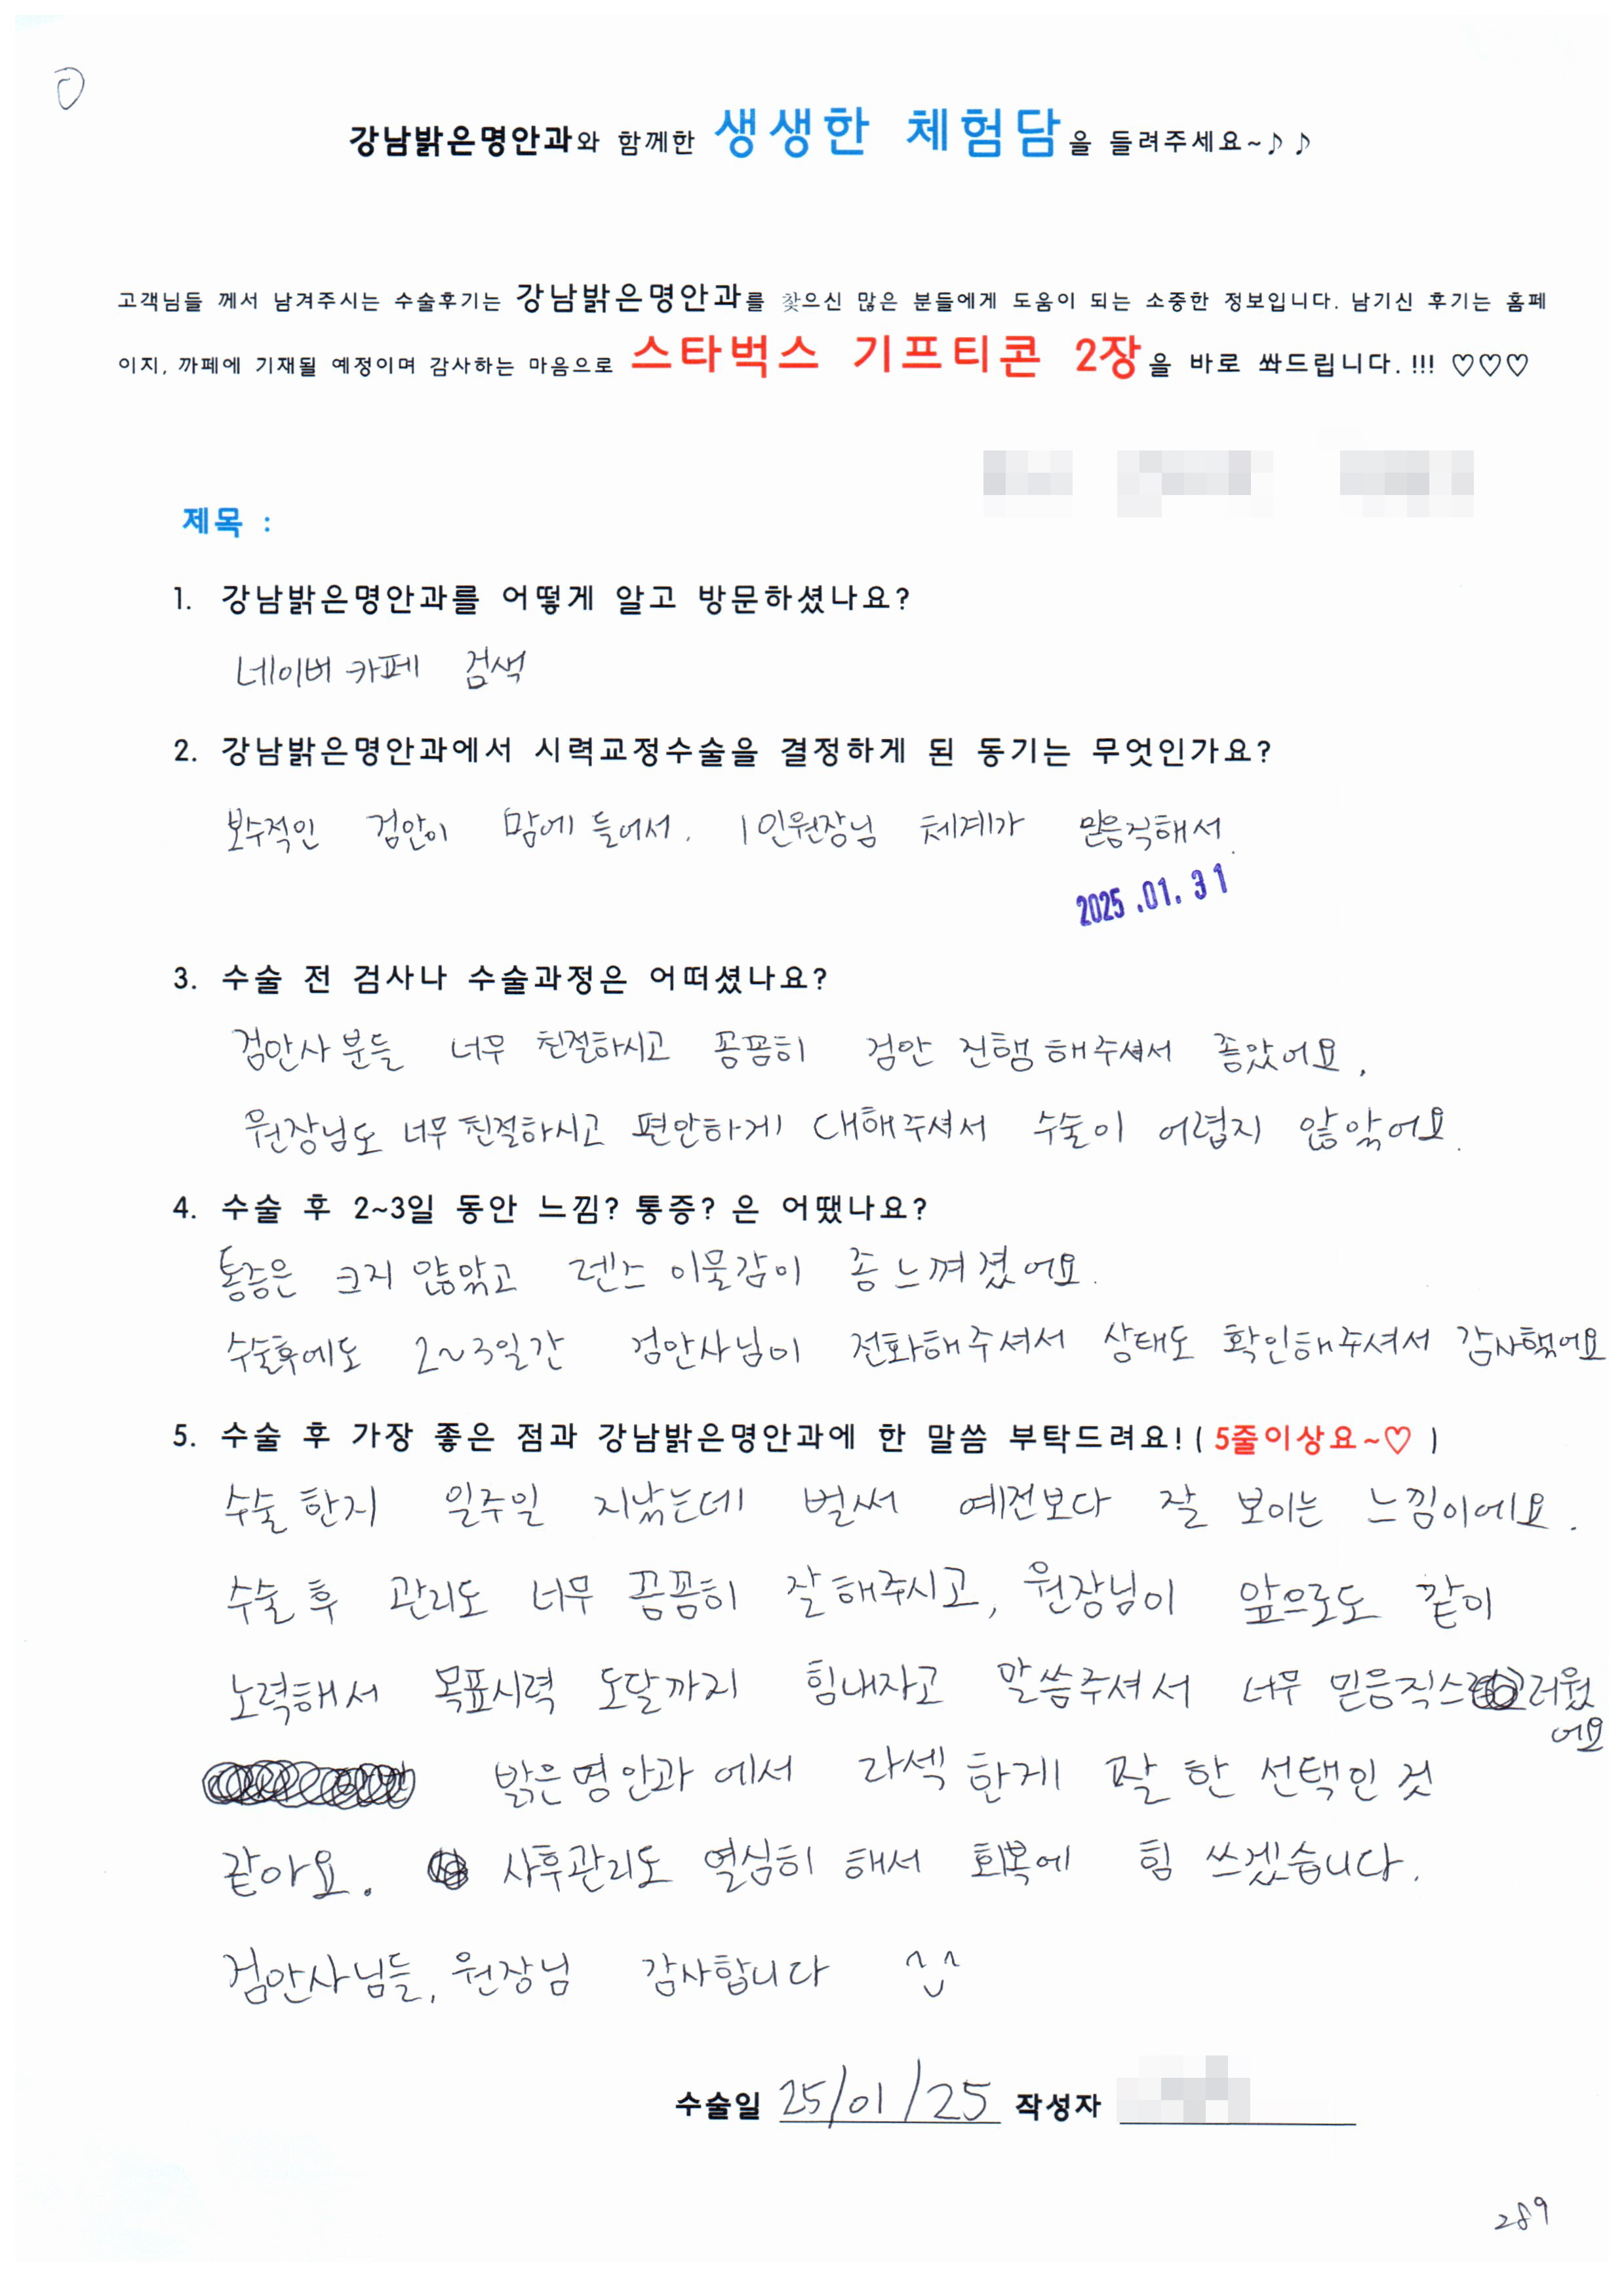 강남밝은명안과와 함께한 생생한 체험담을 들려주세요~♪♪
고객님들 께서 남겨주시는 수술후기는 강남밝은명안과를 찾으신 많은 분들에게 도움이 되는 소중한 정보입니다. 남기신 후기는 홈페
이지, 까페에 기재될 예정이며 감사하는 마음으로 스타벅스 기프티콘 2장을 바로 쏴드립니다.!!! ♡♡♡
제목 :
1. 강남밝은명안과를 어떻게 알고 방문하셨나요?
네이버 카페 검색
2. 강남밝은명안과에서 시력교정수술을 결정하게 된 동기는 무엇인가요?
보수적인 검안이 맘에 들어서. 1인원장님 체계가 믿음직해서.
2025.01.31
3. 수술 전 검사나 수술과정은 어떠셨나요?
검안사 분들 너무 친절하시고 꼼꼼히 검안 진행해주셔서 좋았어요.
원장님도 너무 친절하시고 편안하게 대해주셔서 수술이 어렵지 않았어요.
4. 수술 후 2~3일 동안 느낌? 통증? 은 어땠나요?
통증은 크지 않았고 렌즈 이물감이 좀 느껴졌어요.
수술후에도 2~3일간 검안사님이 전화해주셔서 상태도 확인해주셔서 감사했어요
5. 수술 후 가장 좋은 점과 강남밝은명안과에 한 말씀 부탁드려요!(5줄이상요~♡ )
수술 한지 일주일 지났는데 벌써 예전보다 잘 보이는 느낌이에요.
수술 후 관리도 너무 꼼꼼히 잘해주시고, 원장님이 앞으로도 같이
노력해서 목표시력 도달까지 힘내자고 말씀주셔서 너무 믿음직스러웠
어요
밝은명안과에서 라섹 한게 잘 한 선택인 것
같아요. 사후관리도 열심히 해서 회복에 힘 쓰겠습니다.
검안사님들, 원장님 감사합니다 ^^
수술일 25/01/25 작성자
289